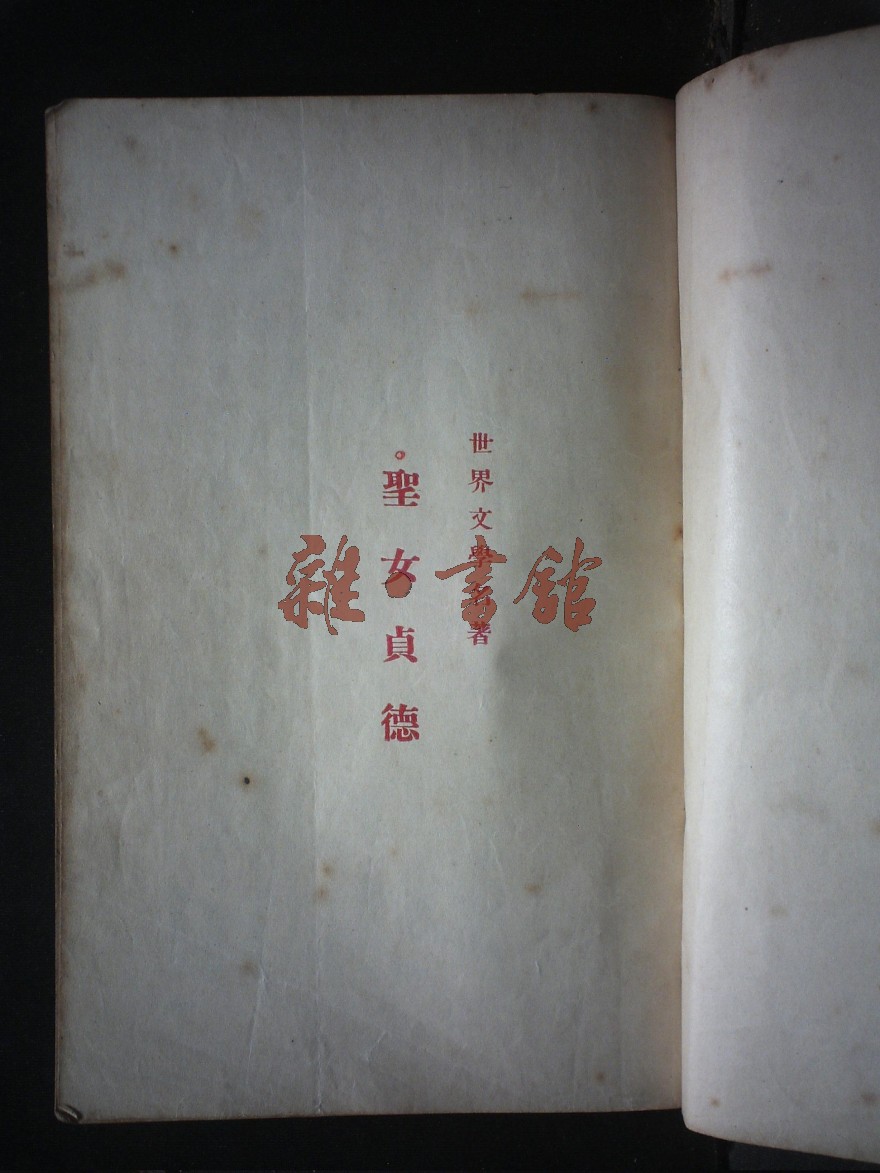 世界文學名著
聖女貞德
雜·書館